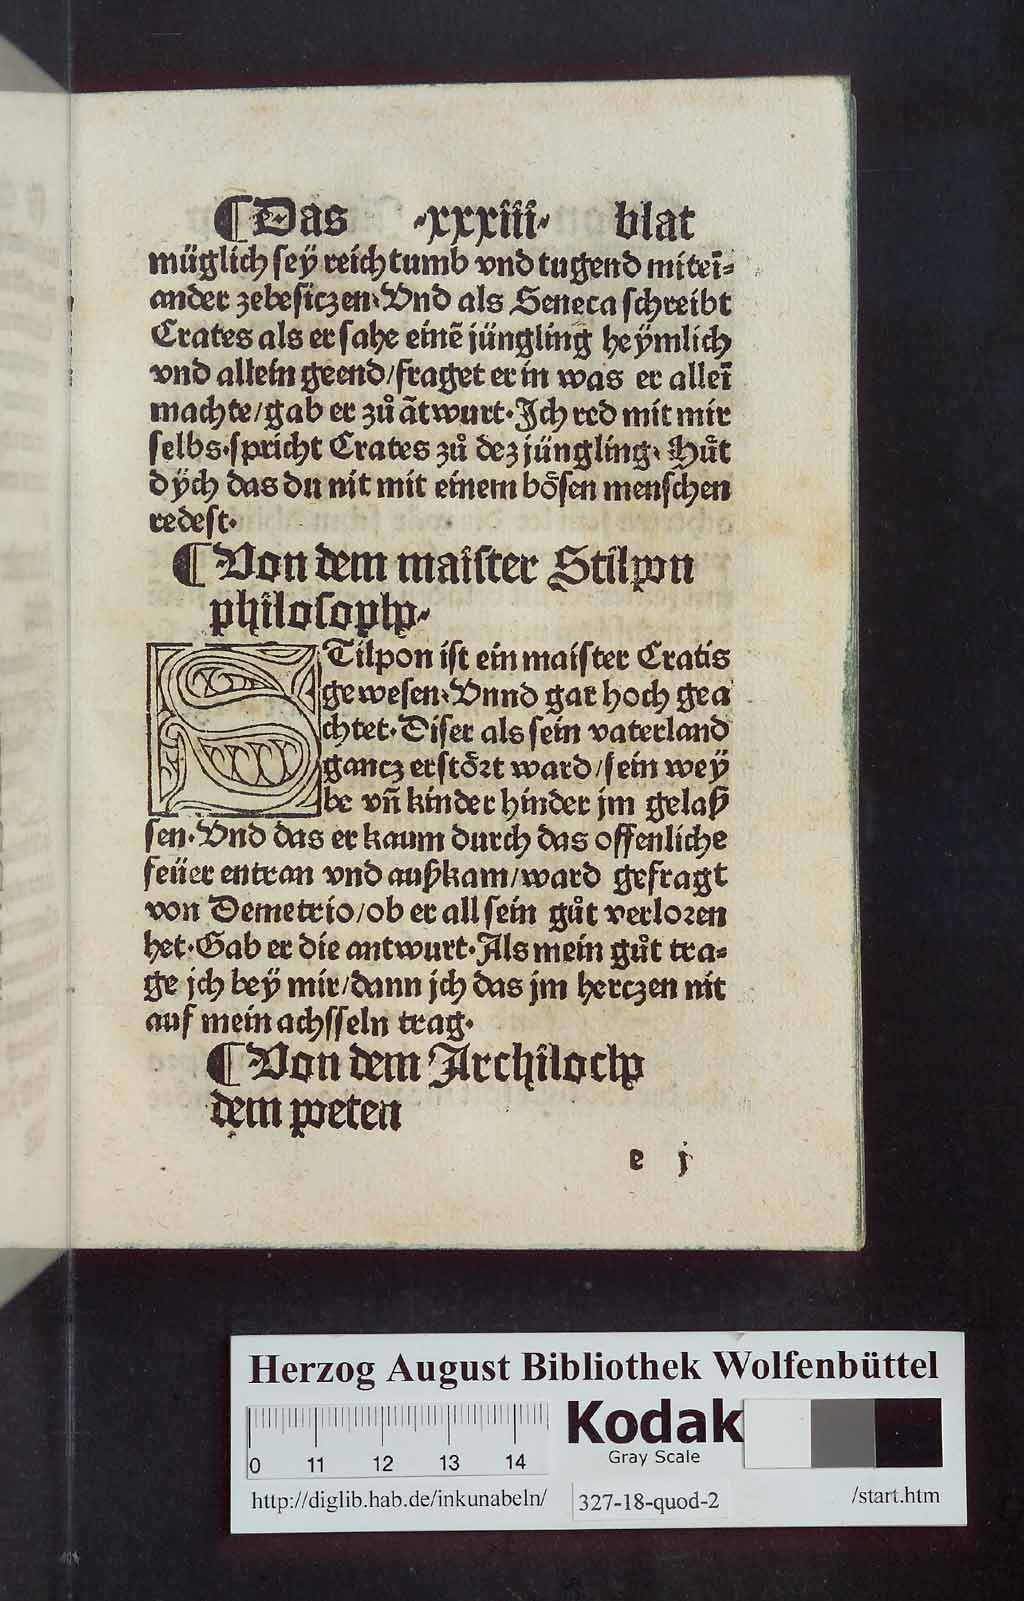 ¶ Das ·xxxiii· blat
müglich seÿ reichtumb vnd tugend miteī-
ander zebesiczen·Vnd als Seneca schreibt
Crates als er sahe einē jüngling heÿmlich
vnd allein geend/fraget er in was er alleī
machte/gab er zů ātwurt·Ich red mit mir
selbs·spricht Crates zů dez jüngling·Hůt
dÿch das du nit mit einem bösen menschen
redest·
¶ Von dem maister Stilpon
philosopho·
STilpon ist ein maister Cratis
gewesen·Vnnd gar hoch gea
chtet·Diser als sein vaterland
gancz erstört ward/sein wey
be vñ kinder hinder jm gelaß
sen·Vnd das er kaum durch das offenliche
feüer entran vnd außkam/ward gefragt
von Demetrio/ob er all sein gůt verloren
het·Gab er die antwurt·Als mein gůt tra-
ge jch beÿ mir/dann jch das jm herczen nit
auf mein achsseln trag·
¶ Von dem Archilocho
dem poeten
e j
Herzog August Bibliothek Wolfenbüttel
0 11 12 13 14
Kodak
Gray Scale
http://diglib.hab.de/inkunabeln/ 327-18-quod-2 /start.htm